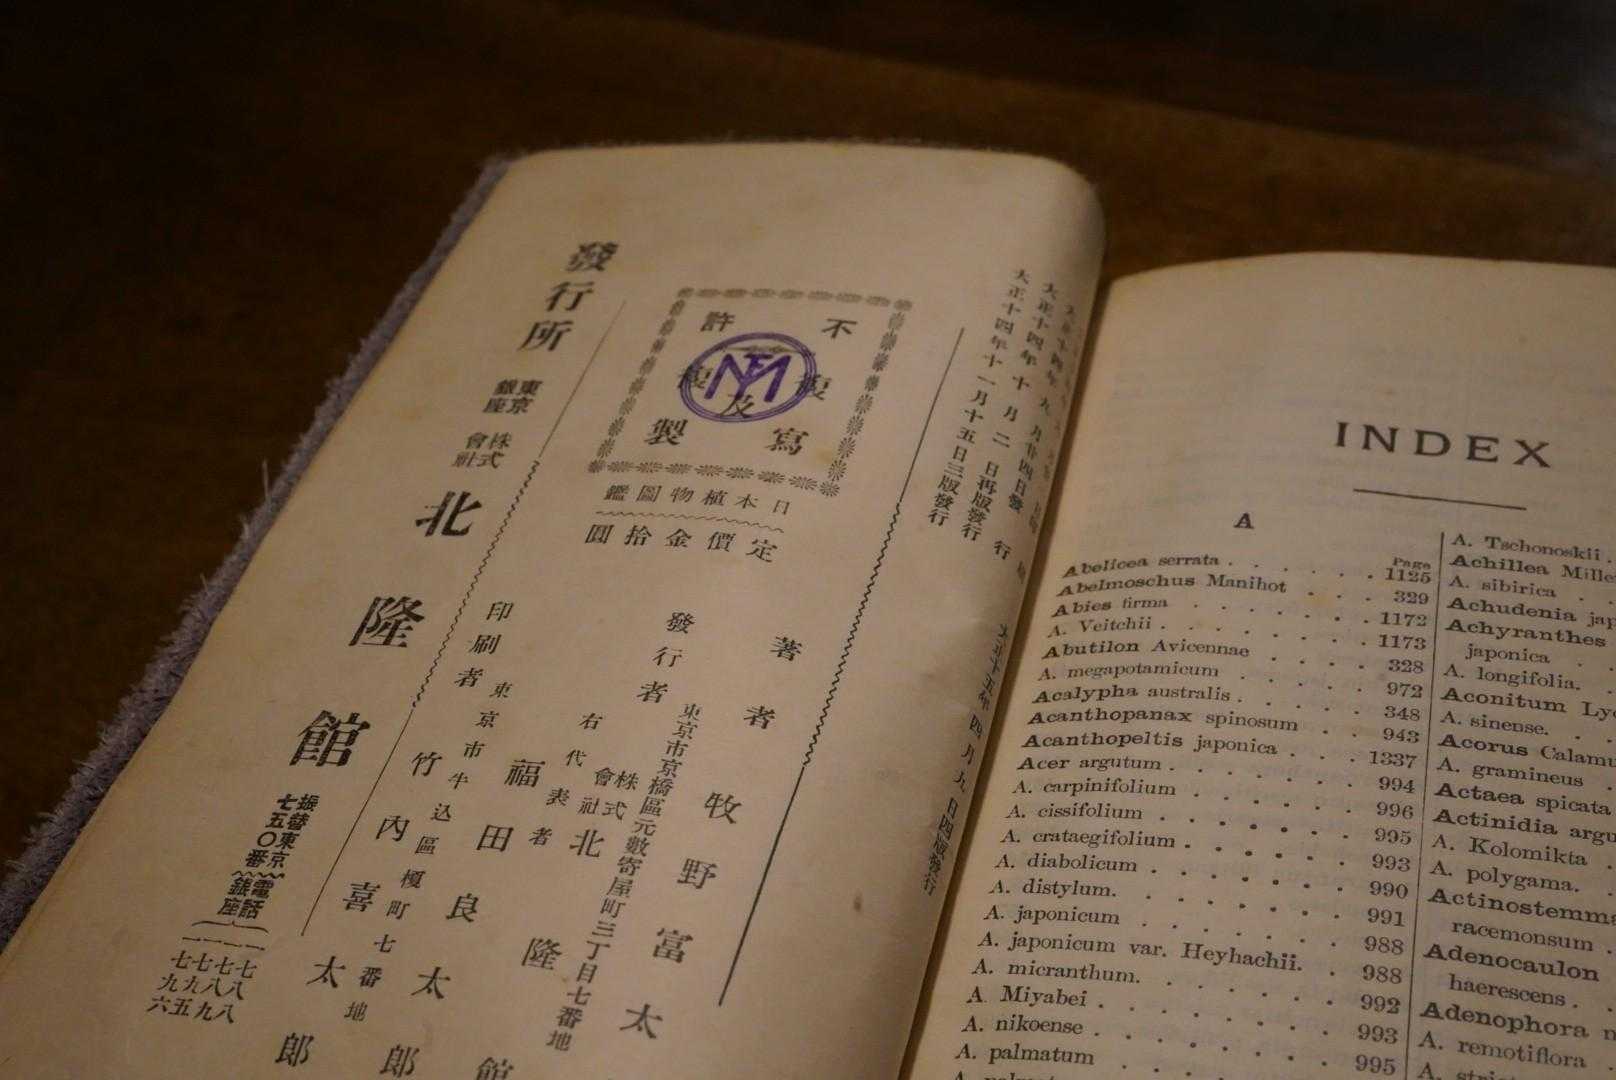 大正十四年九月廿四日發行
大正十四年十月二日再版發行
大正十四年十一月十五日三版發行
大正十五年四月九日四版發行
不許
複寫
及
複製
日本植物圖鑑
定價金拾圓
著者
牧野富太
發行者
東京市京橋區元數寄屋町三丁目七番地
株式會社
北隆館
右代表者
福田良太郎
印刷者
東京市牛込區榎町七番地
竹內喜太郎
發行所
東京銀座
株式會社
北隆館
振替東京七五〇番
電話銀座
INDEX
A
Page
Abelicea serrata . . . . . . 1125
Abelmoschus Manihot . . . 329
Abies firma . . . . . . 1172
A. Veitchii . . . . . . 1173
Abutilon Avicennae . . . . 328
A. megapotamicum . . . . . 972
Acalypha australis . . . . . 348
Acanthopanax spinosum . . 943
Acanthopeltis japonica . . . 1337
Acer argutum . . . . . . 994
A. carpinifolium . . . . . . 996
A. cissifolium . . . . . . 995
A. crataegifolium . . . . . . 993
A. diabolicum . . . . . . 990
A. distylum. . . . . . . 991
A. japonicum . . . . . . 988
A. japonicum var. Heyhachii. . 988
A. micranthum. . . . . . 992
A. Miyabei . . . . . . 993
A. nikoense . . . . . . 995
A. palmatum
A. Tschonoskii
Achillea
A. sibirica
Achudenia
Achyranthes
japonica
A. longifolia.
Aconitum
A. sinense.
Acorus
A. gramineus
Actaea spicata
Actinidia
A. Kolomikta
A. polygama.
racemonsum
Adenocaulon
haerescens
Adenophora
A. remotiflora